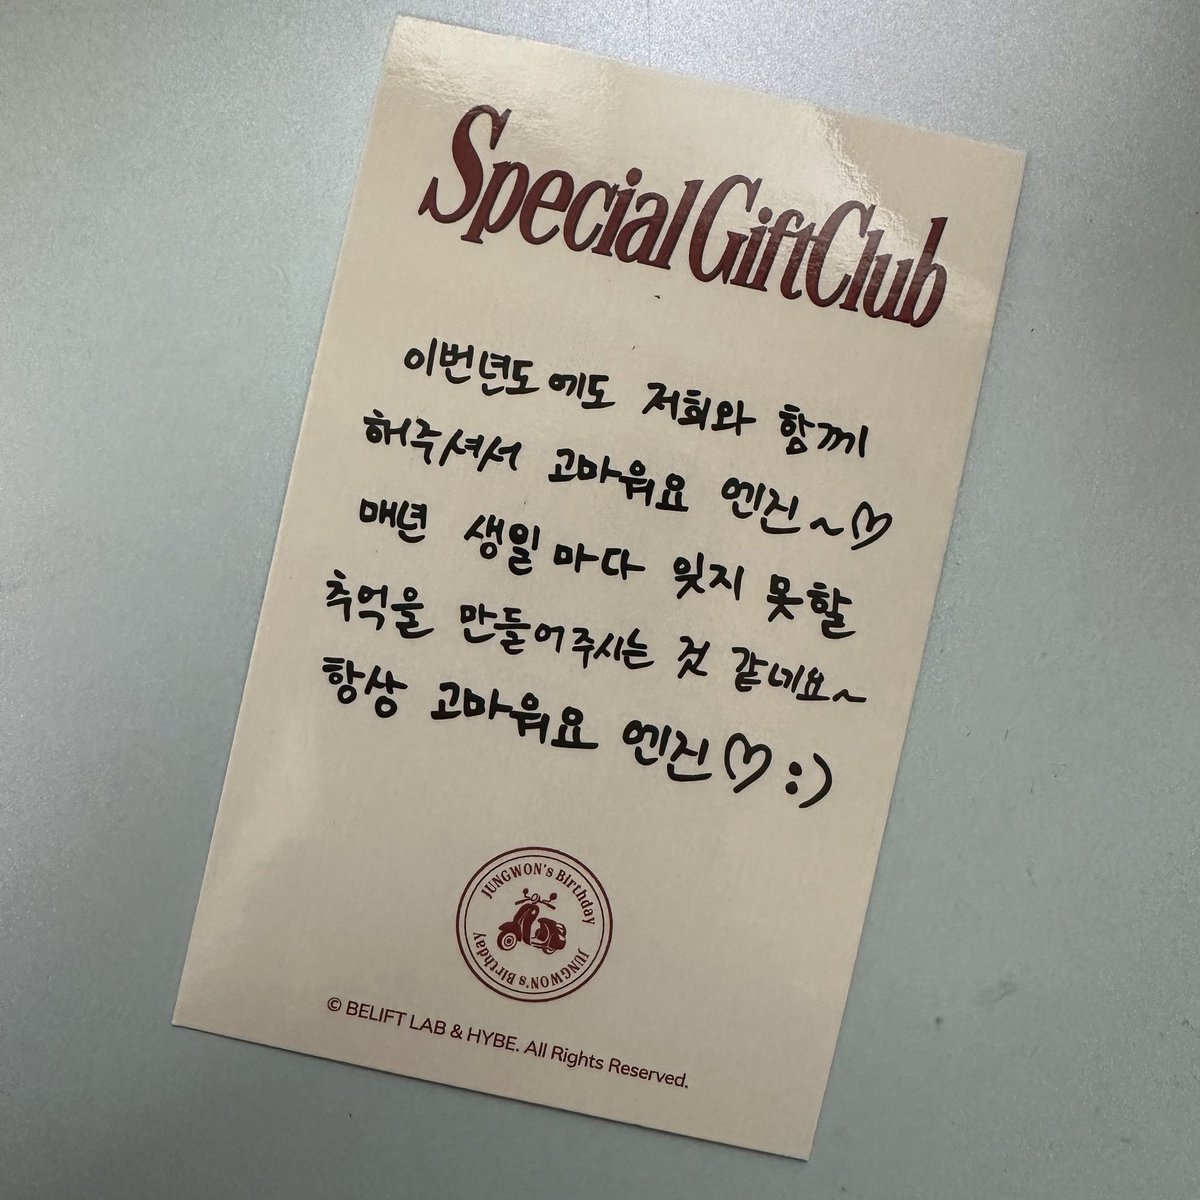 Special Gift Club
이번년도에도 저희와 함께
해주셔서 고마워요 엔진~♡
매년 생일마다 잊지 못할
추억을 만들어주시는 것 같네요~
항상 고마워요 엔진♡ :)
JUNGWON's Birthday
JUNGWON's Birthday
© BELIFT LAB & HYBE. All Rights Reserved.